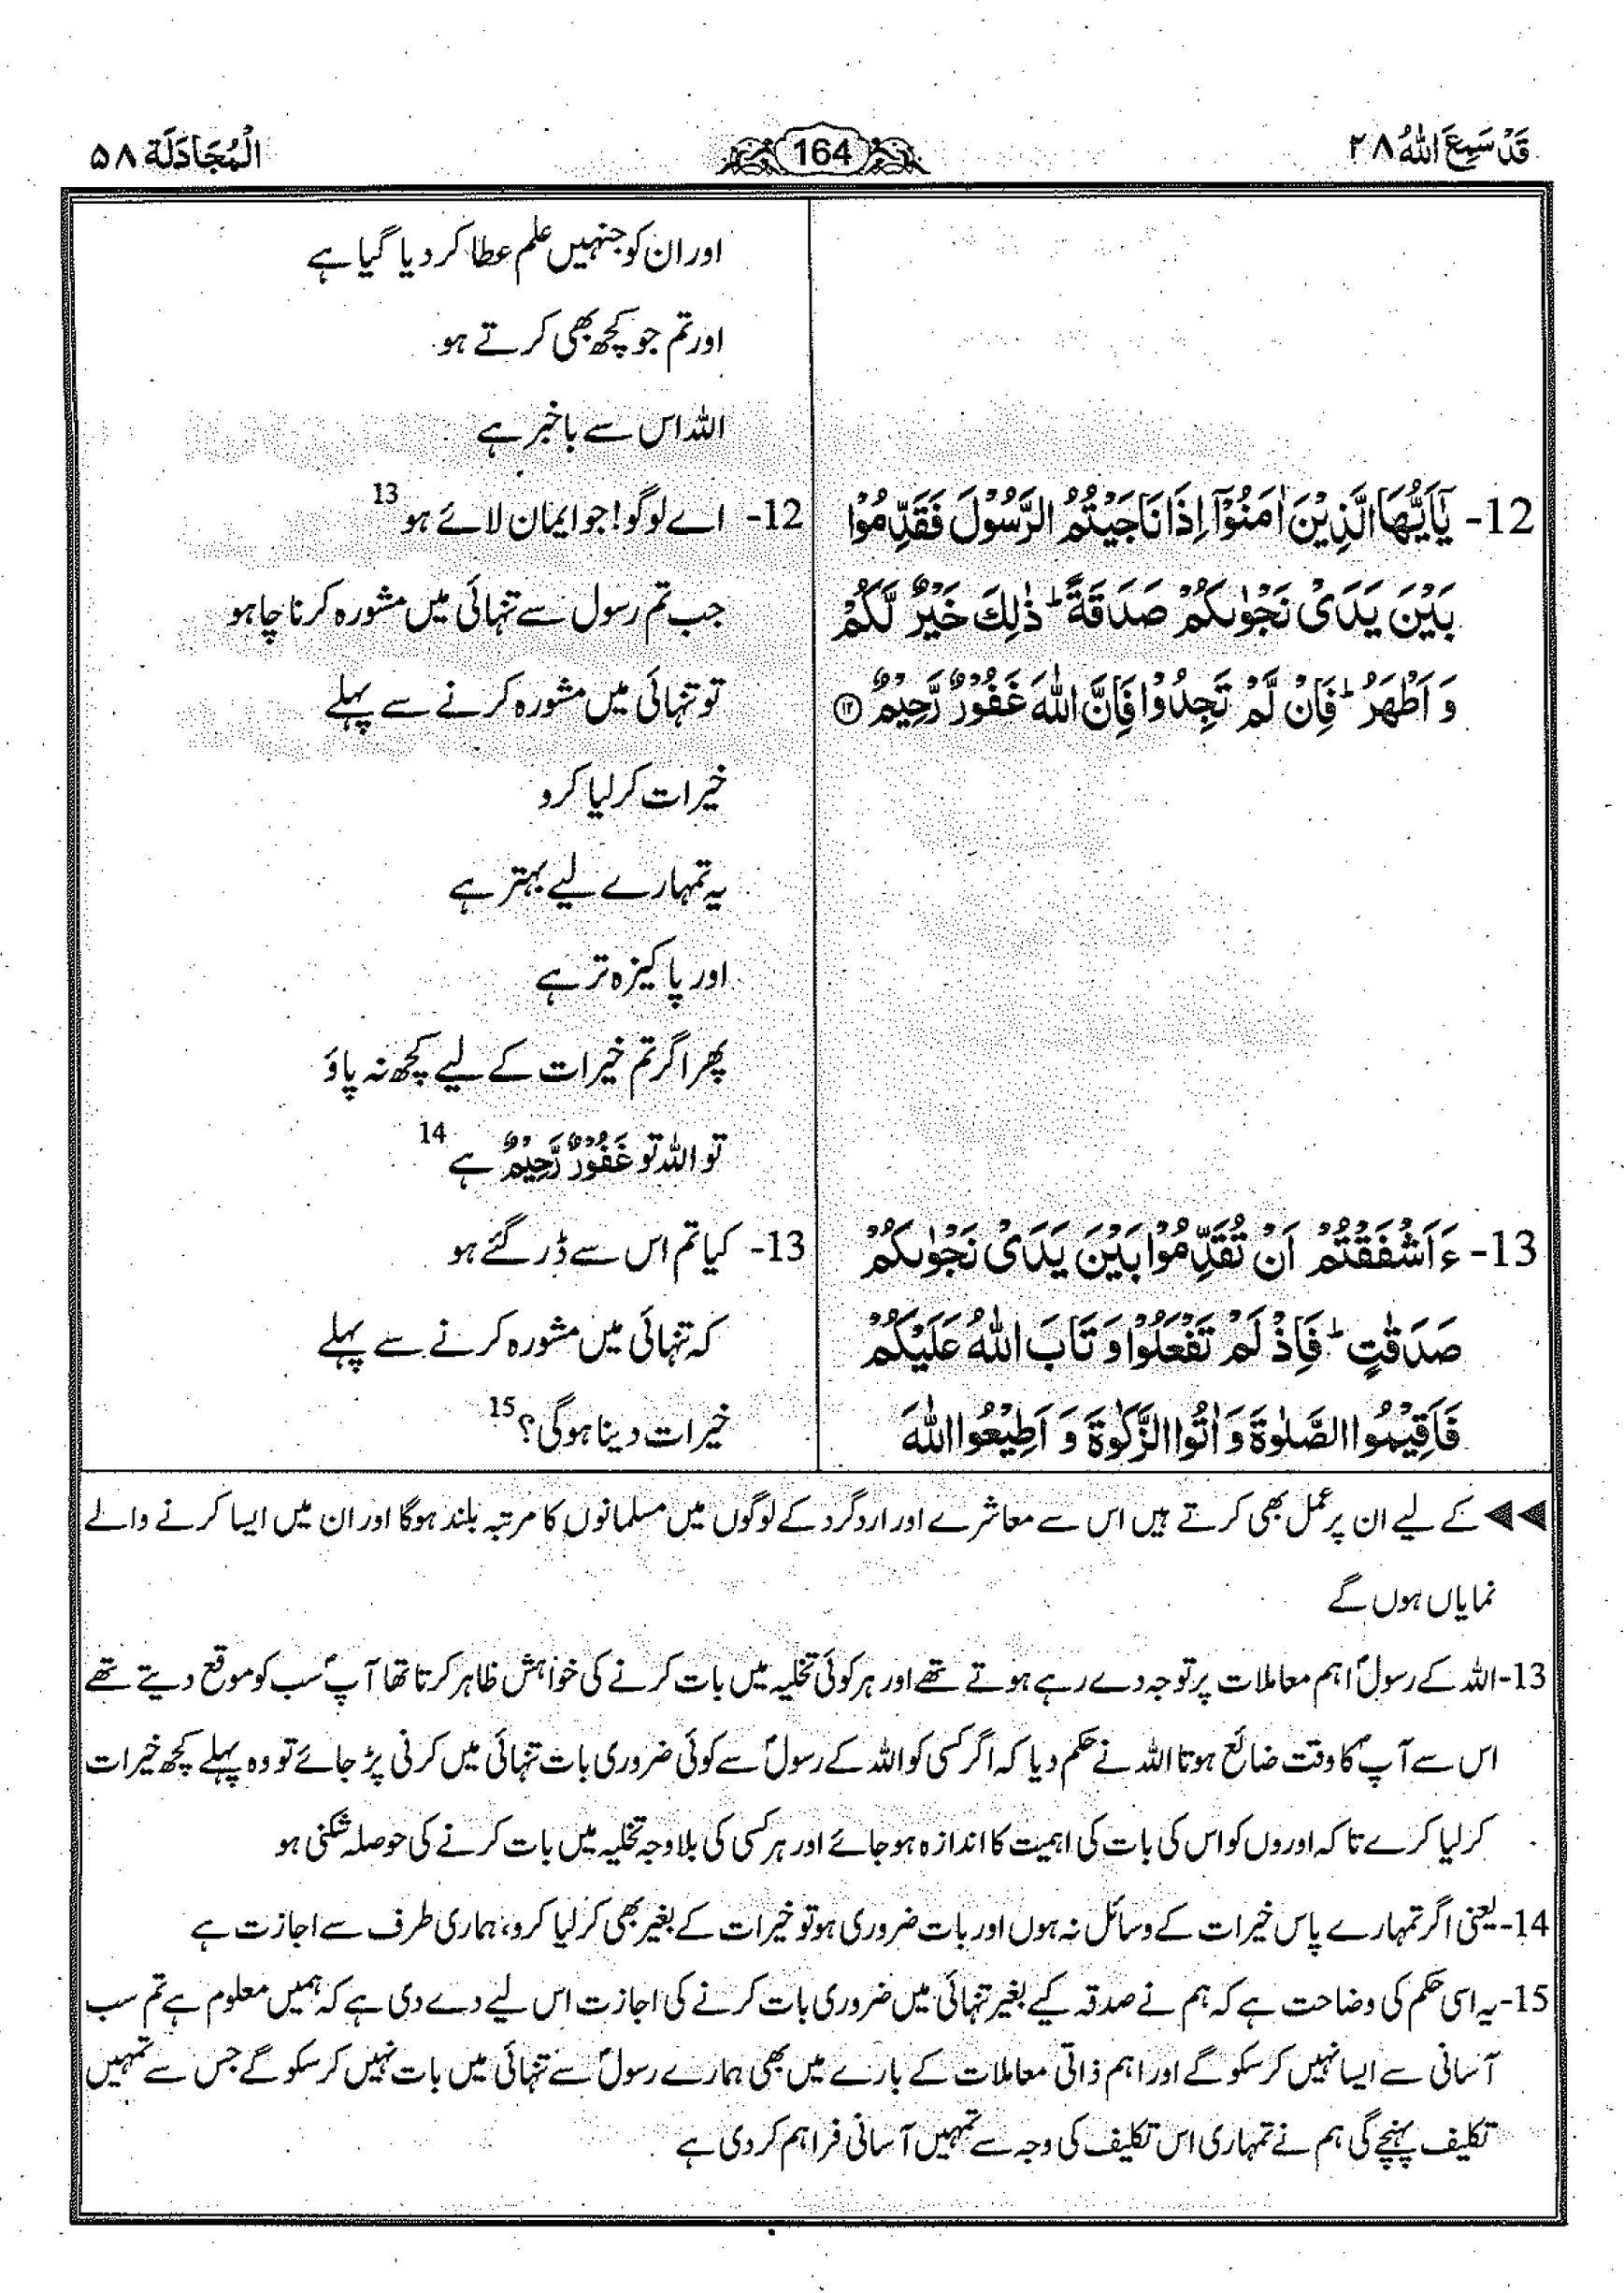 قَدْ سَمِعَ اللهُ ۲۸
164
الْمُجَادَلَة ۵۸
اور ان کو جنہیں علم عطا کر دیا گیا ہے
اور تم جو کچھ بھی کرتے ہو
اللہ اس سے باخبر ہے
12- يٰۤاَيُّهَا الَّذِيْنَ اٰمَنُوْۤا اِذَا نَاجَيْتُمُ الرَّسُوْلَ فَقَدِّمُوْا
بَيْنَ يَدَىْ نَجْوٰىكُمْ صَدَقَةً ؕ ذٰلِكَ خَيْرٌ لَّكُمْ
وَ اَطْهَرُ ؕ فَاِنْ لَّمْ تَجِدُوْا فَاِنَّ اللّٰهَ غَفُوْرٌ رَّحِيْمٌ ۝۱۲
12- اے لوگو! جو ایمان لائے ہو 13
جب تم رسول سے تنہائی میں مشورہ کرنا چاہو
تو تنہائی میں مشورہ کرنے سے پہلے
خیرات کر لیا کرو
یہ تمہارے لیے بہتر ہے
اور پاکیزہ تر ہے
پھر اگر تم خیرات کے لیے کچھ نہ پاؤ
تو اللہ تو غَفُوْرٌ رَّحِيْمٌ ہے 14
13- ءَاَشْفَقْتُمْ اَنْ تُقَدِّمُوْا بَيْنَ يَدَىْ نَجْوٰىكُمْ
صَدَقٰتٍ ؕ فَاِذْ لَمْ تَفْعَلُوْا وَ تَابَ اللّٰهُ عَلَيْكُمْ
فَاَقِيْمُوا الصَّلٰوةَ وَ اٰتُوا الزَّكٰوةَ وَ اَطِيْعُوا اللّٰهَ
13- کیا تم اس سے ڈر گئے ہو
کہ تنہائی میں مشورہ کرنے سے پہلے
خیرات دینا ہوگی؟ 15
◀◀ کے لیے ان پر عمل بھی کرتے ہیں اس سے معاشرے اور اردگرد کے لوگوں میں مسلمانوں کا مرتبہ بلند ہوگا اور ان میں ایسا کرنے والے
نمایاں ہوں گے
13-اللہ کے رسولؐ اہم معاملات پر توجہ دے رہے ہوتے تھے اور ہر کوئی تخلیہ میں بات کرنے کی خواہش ظاہر کرتا تھا آپؐ سب کو موقع دیتے تھے
اس سے آپؐ کا وقت ضائع ہوتا اللہ نے حکم دیا کہ اگر کسی کو اللہ کے رسولؐ سے کوئی ضروری بات تنہائی میں کرنی پڑ جائے تو وہ پہلے کچھ خیرات
کر لیا کرے تا کہ اوروں کو اس کی بات کی اہمیت کا اندازہ ہو جائے اور ہر کسی کی بلاوجہ تخلیہ میں بات کرنے کی حوصلہ شکنی ہو
14-یعنی اگر تمہارے پاس خیرات کے وسائل نہ ہوں اور بات ضروری ہو تو خیرات کے بغیر بھی کر لیا کرو، ہماری طرف سے اجازت ہے
15-یہ اسی حکم کی وضاحت ہے کہ ہم نے صدقہ کیے بغیر تنہائی میں ضروری بات کرنے کی اجازت اس لیے دے دی ہے کہ ہمیں معلوم ہے تم سب
آسانی سے ایسا نہیں کر سکو گے اور اہم ذاتی معاملات کے بارے میں بھی ہمارے رسولؐ سے تنہائی میں بات نہیں کر سکو گے جس سے تمہیں
تکلیف پہنچے گی ہم نے تمہاری اس تکلیف کی وجہ سے تمہیں آسانی فراہم کر دی ہے